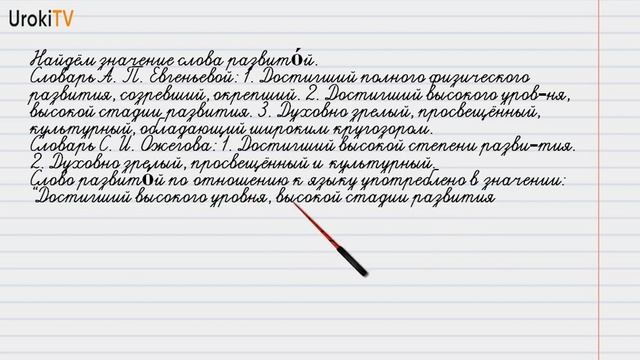 UrokiTV
Найдём значение слова развито́й.
Словарь А. П. Евгеньевой: 1. Достигший полного физического
развития, созревший, окрепший. 2. Достигший высокого уров-ня,
высокой стадии развития. 3. Духовно зрелый, просвещённый,
культурный, обладающий широким кругозором.
Словарь С. И. Ожегова: 1. Достигший высокой степени разви-тия.
2. Духовно зрелый, просвещённый и культурный.
Слово развито́й по отношению к языку употреблено в значении:
"Достигший высокого уровня, высокой стадии развития